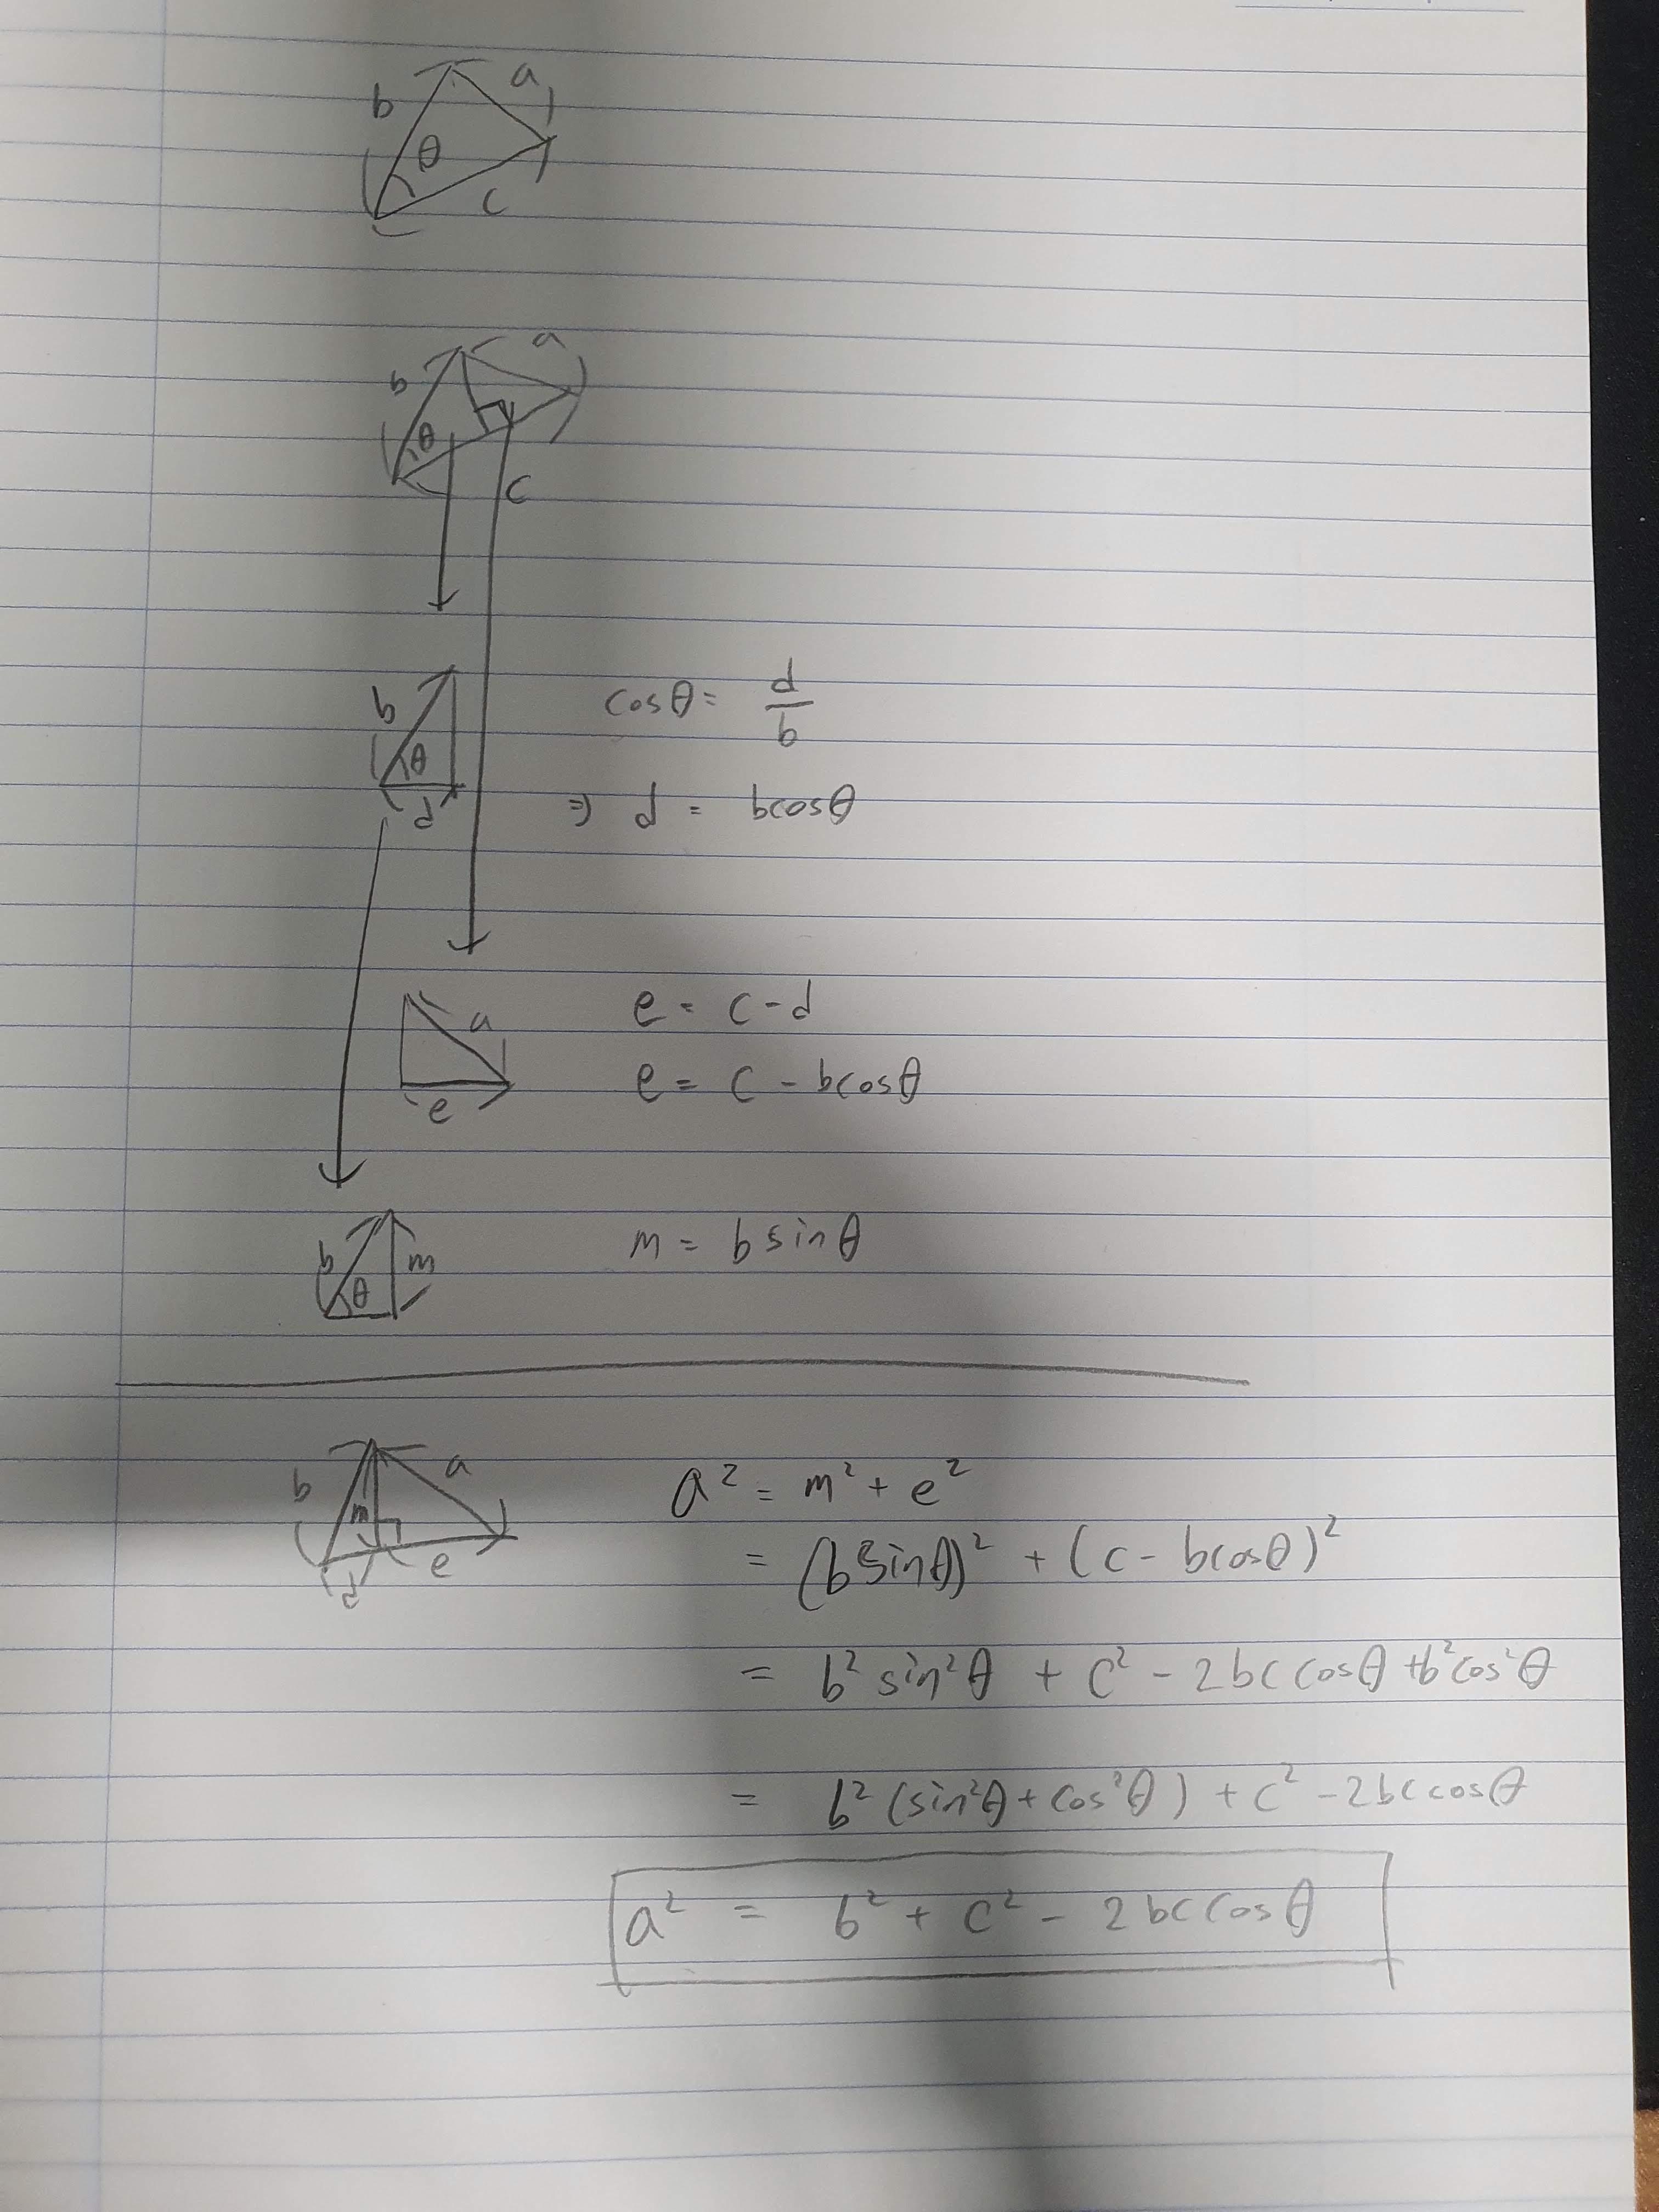 b a
θ
c
b a
θ
c
b
θ
d
cosθ = d/b
⇒ d = bcosθ
a
e
e = c - d
e = c - bcosθ
b m
θ
m = b sinθ
b a
m
d e
a² = m² + e²
= (bsinθ)² + (c - bcosθ)²
= b² sin²θ + c² - 2bc cosθ + b²cos²θ
= b² (sin²θ + cos²θ) + c² - 2bc cosθ
a² = b² + c² - 2bc cosθ